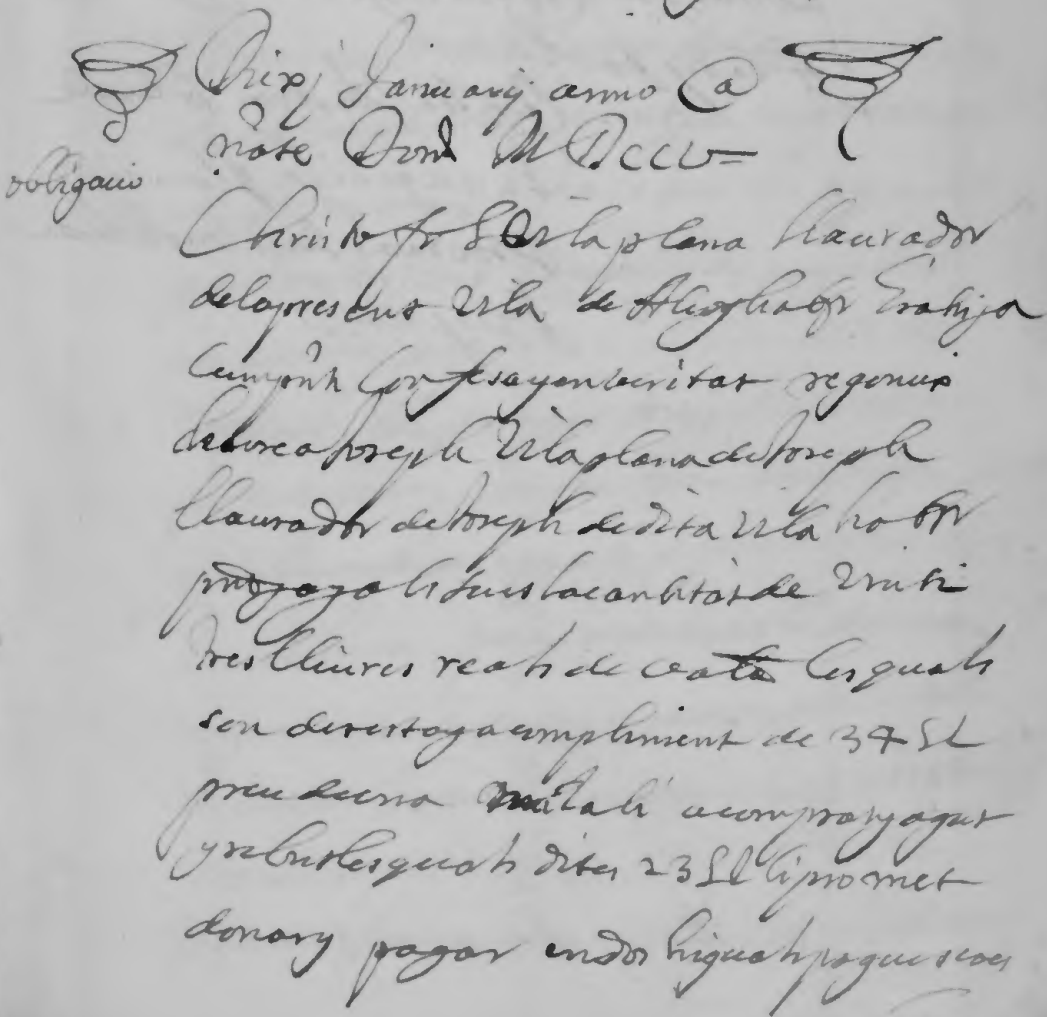 Die xj Januarij anno a
nate Domi MDCCV
obligacio
Christofol Vilaplana llaurador
de la present vila de Alcoy habr Gratis ja
cum pnti confesa y en veritat regoneix
deure a Joseph Vilaplana de Joseph
llaurador de Joseph de dita vila habr
pnt y als seus la cantitat de vint i
tres lliures reals de vala les quals
son de resta y a compliment de 34 SL
preu de una mula li a comprat y agut
y rebut les quals dites 23 SL li promet
donar y pagar en dos iguals pagues ço es